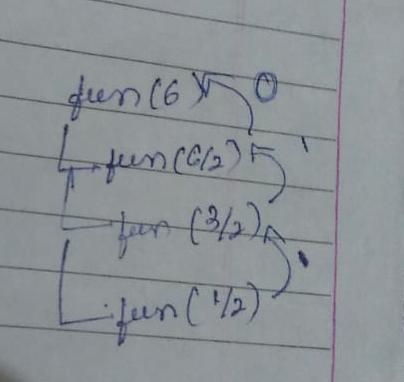 fun(6) 0
fun(6/2) 1
fun(3/2)
fun(1/2)